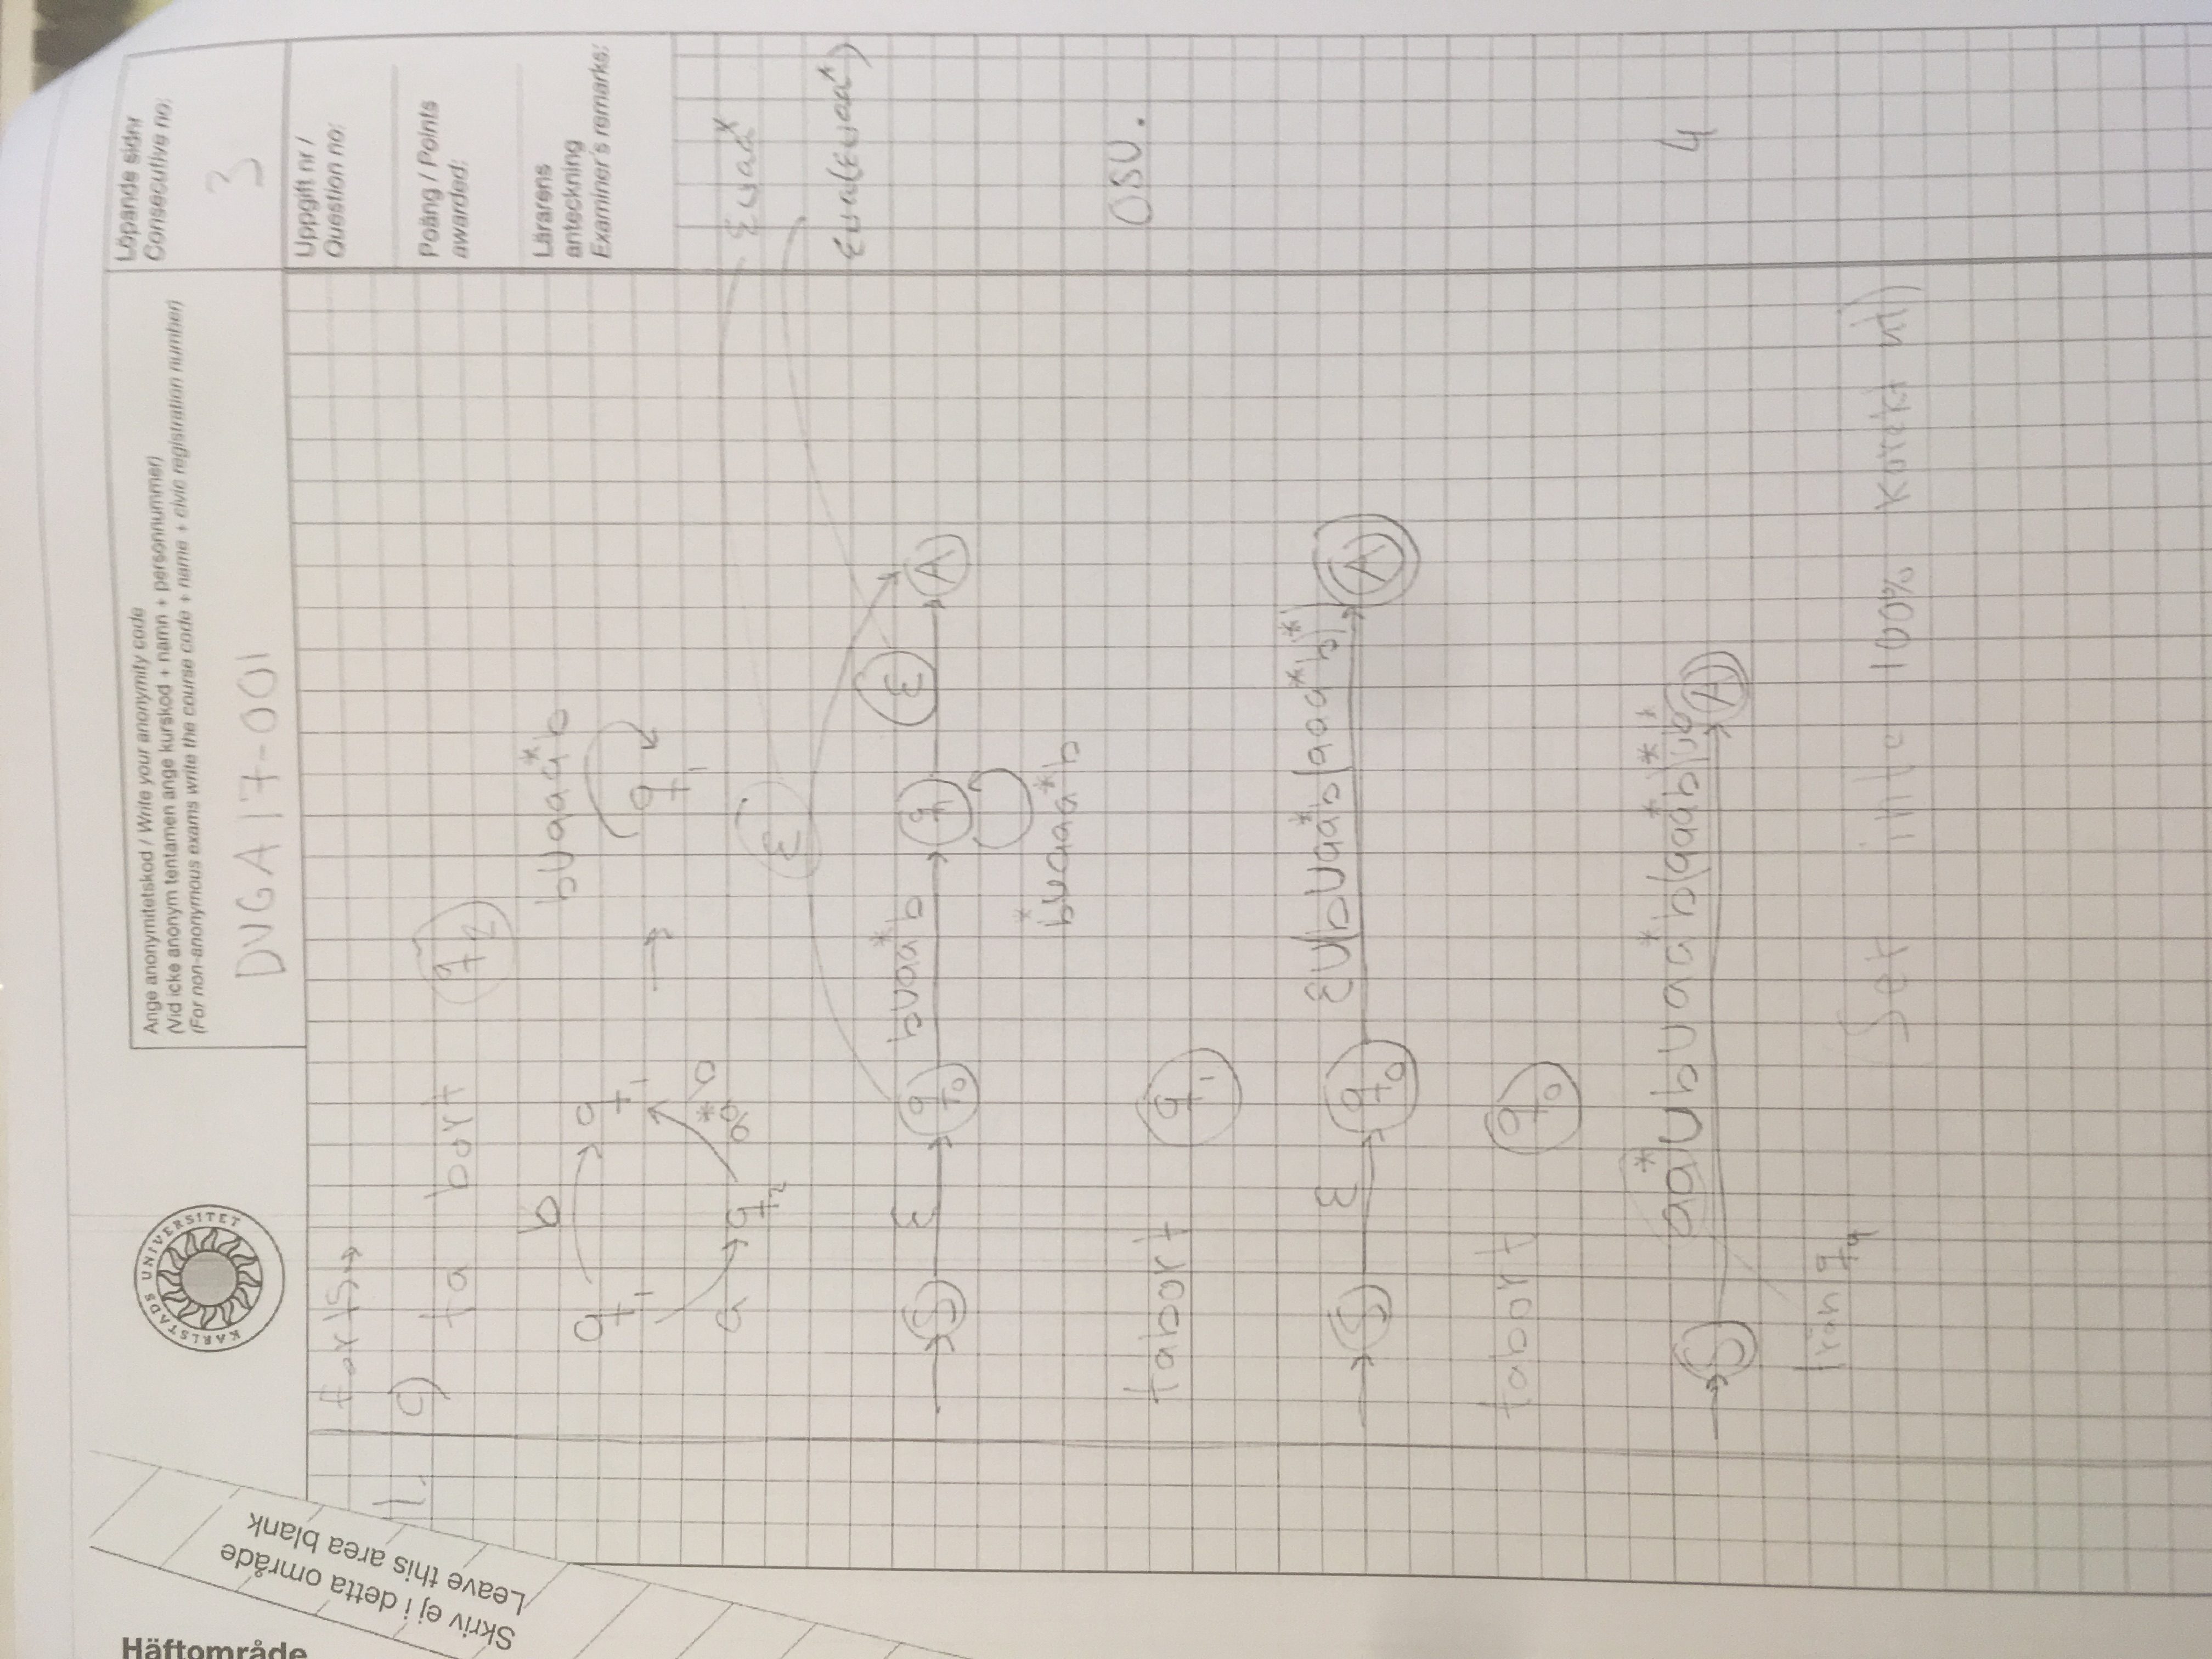 Häftområde
Skriv ej i detta område
Leave this area blank
KARLSTADS UNIVERSITET
Ange anonymitetskod / Write your anonymity code
(Vid icke anonym tentamen ange kurskod + namn + personnummer)
(For non-anonymous exams write the course code + name + civic registration number)
DVGA17-001
Löpande sidnr
Consecutive no:
3
Uppgift nr /
Question no:
Poäng / Points
awarded:
Lärarens
anteckning
Examiner's remarks:
1.
ta bort q2
b
b∪aaa*b
q1 q1
q1
a q2 aa*b
ε
ε∪aa*
ε∪a(ε∪aa*)
S ε q0 b∪aa*b q1 ε A
b∪aaa*b
osv.
tabort q1
S ε q0 ε∪(b∪aa*b(aaa*b)*) A
tabort q0
S A
4
från
Ser inte 100% korekt ut)